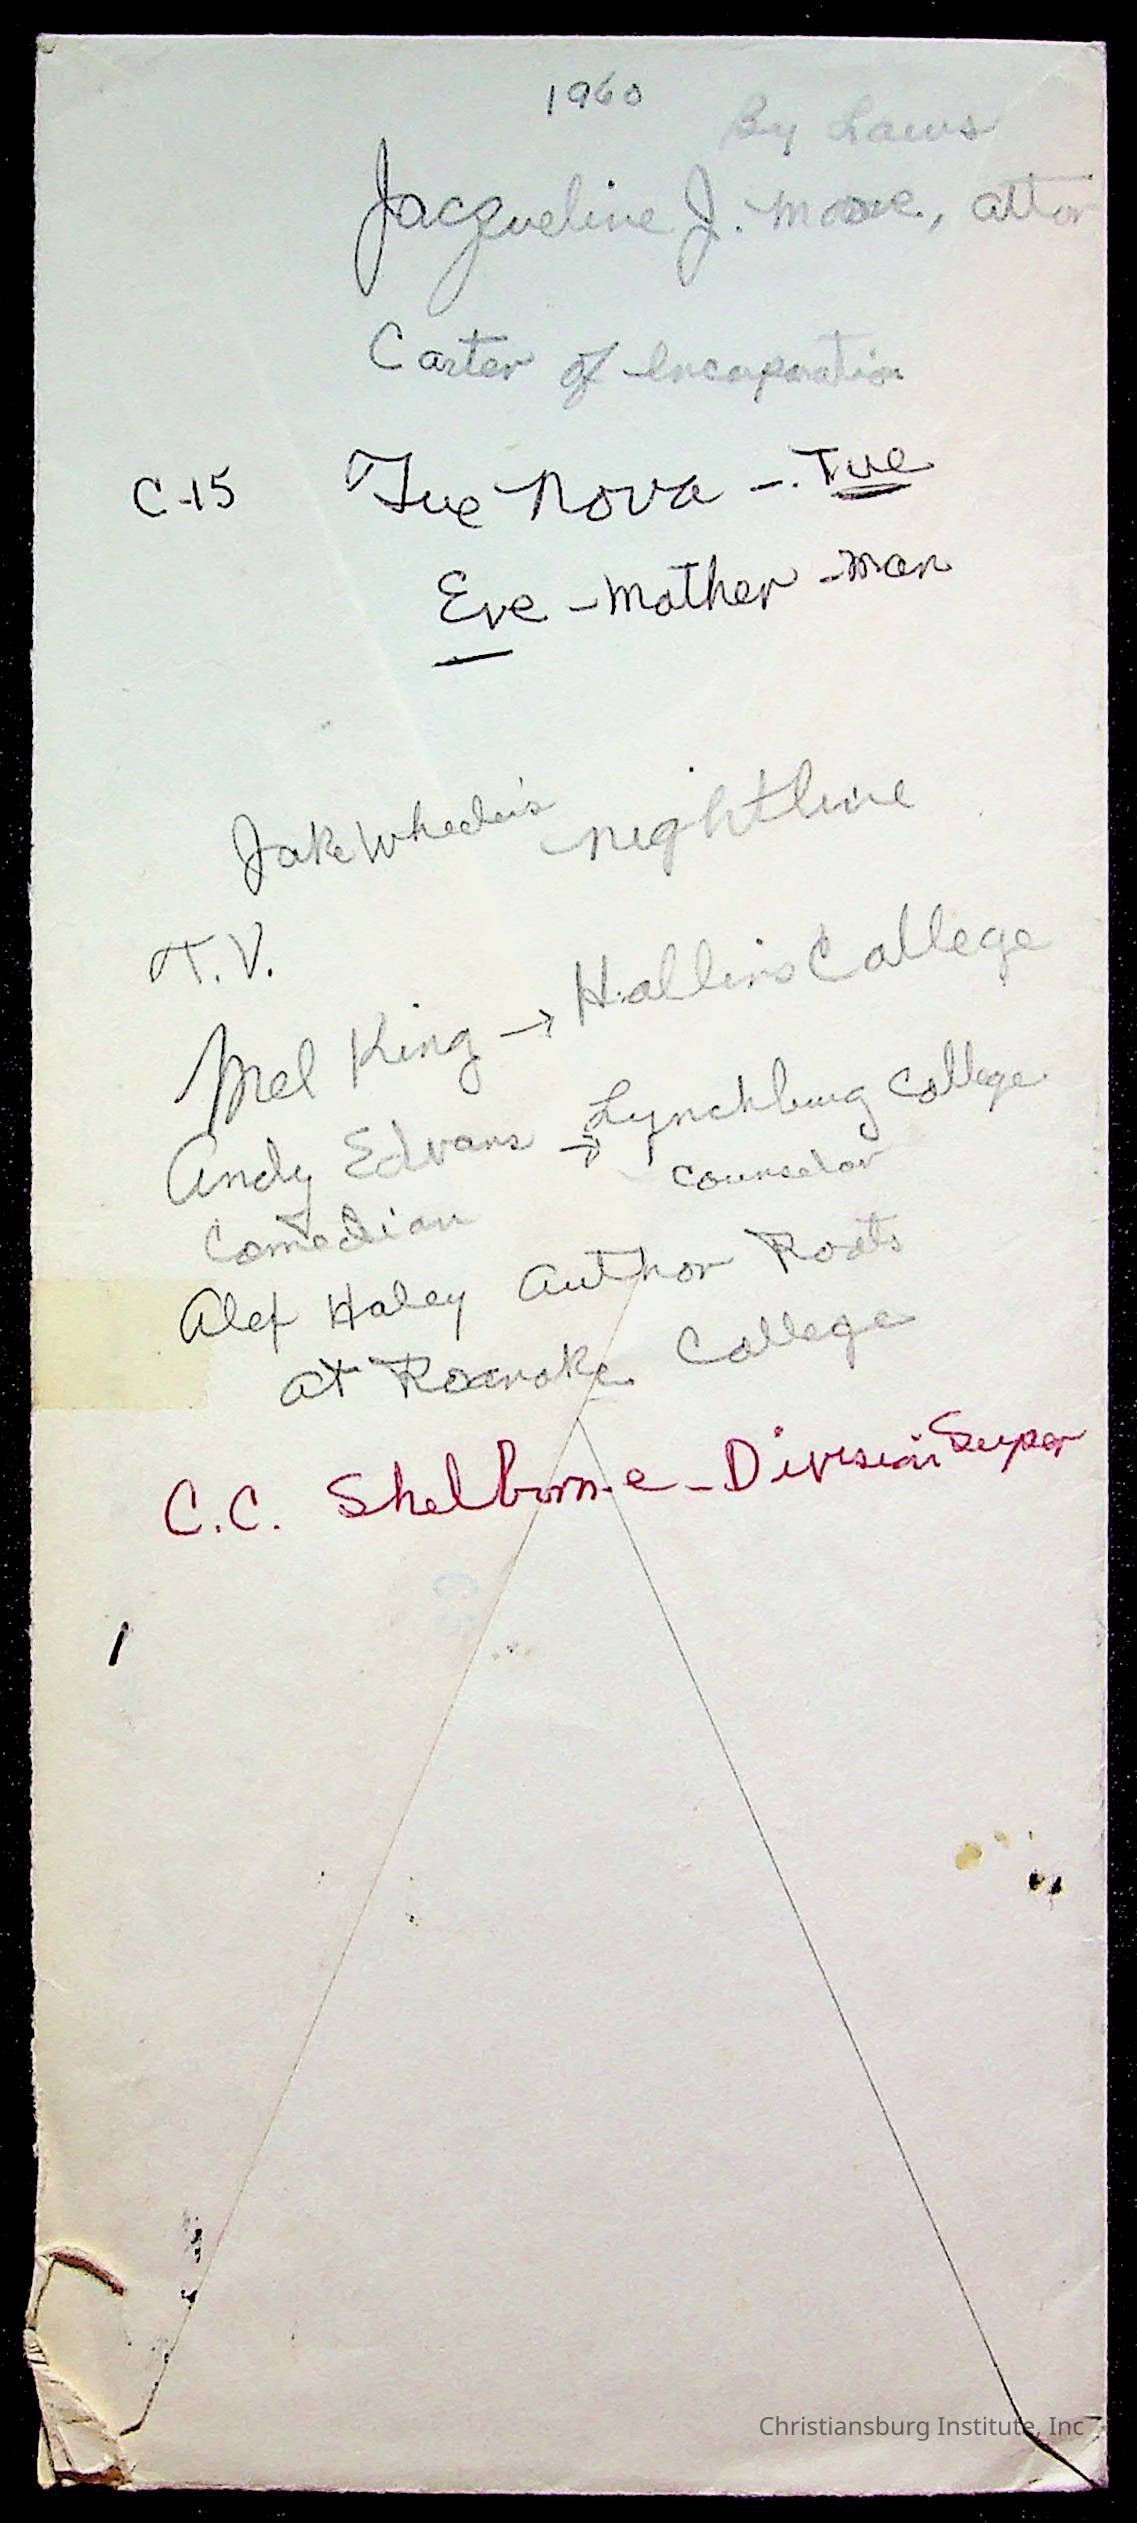 1960
By Laws
Jacqueline J. Moore, attor
Carter of Incorporation
C-15 Tue Nova -. Tue
Eve - Mother - Man
Jake Wheeler's nightline
T.V.
Mel King → Hollins College
Andy Edvans → Lynchburg College
Comedian counselor
Alex Haley Author Roots
at Roanoke College
C.C. Shelburne - Division Super
Christiansburg Institute, Inc